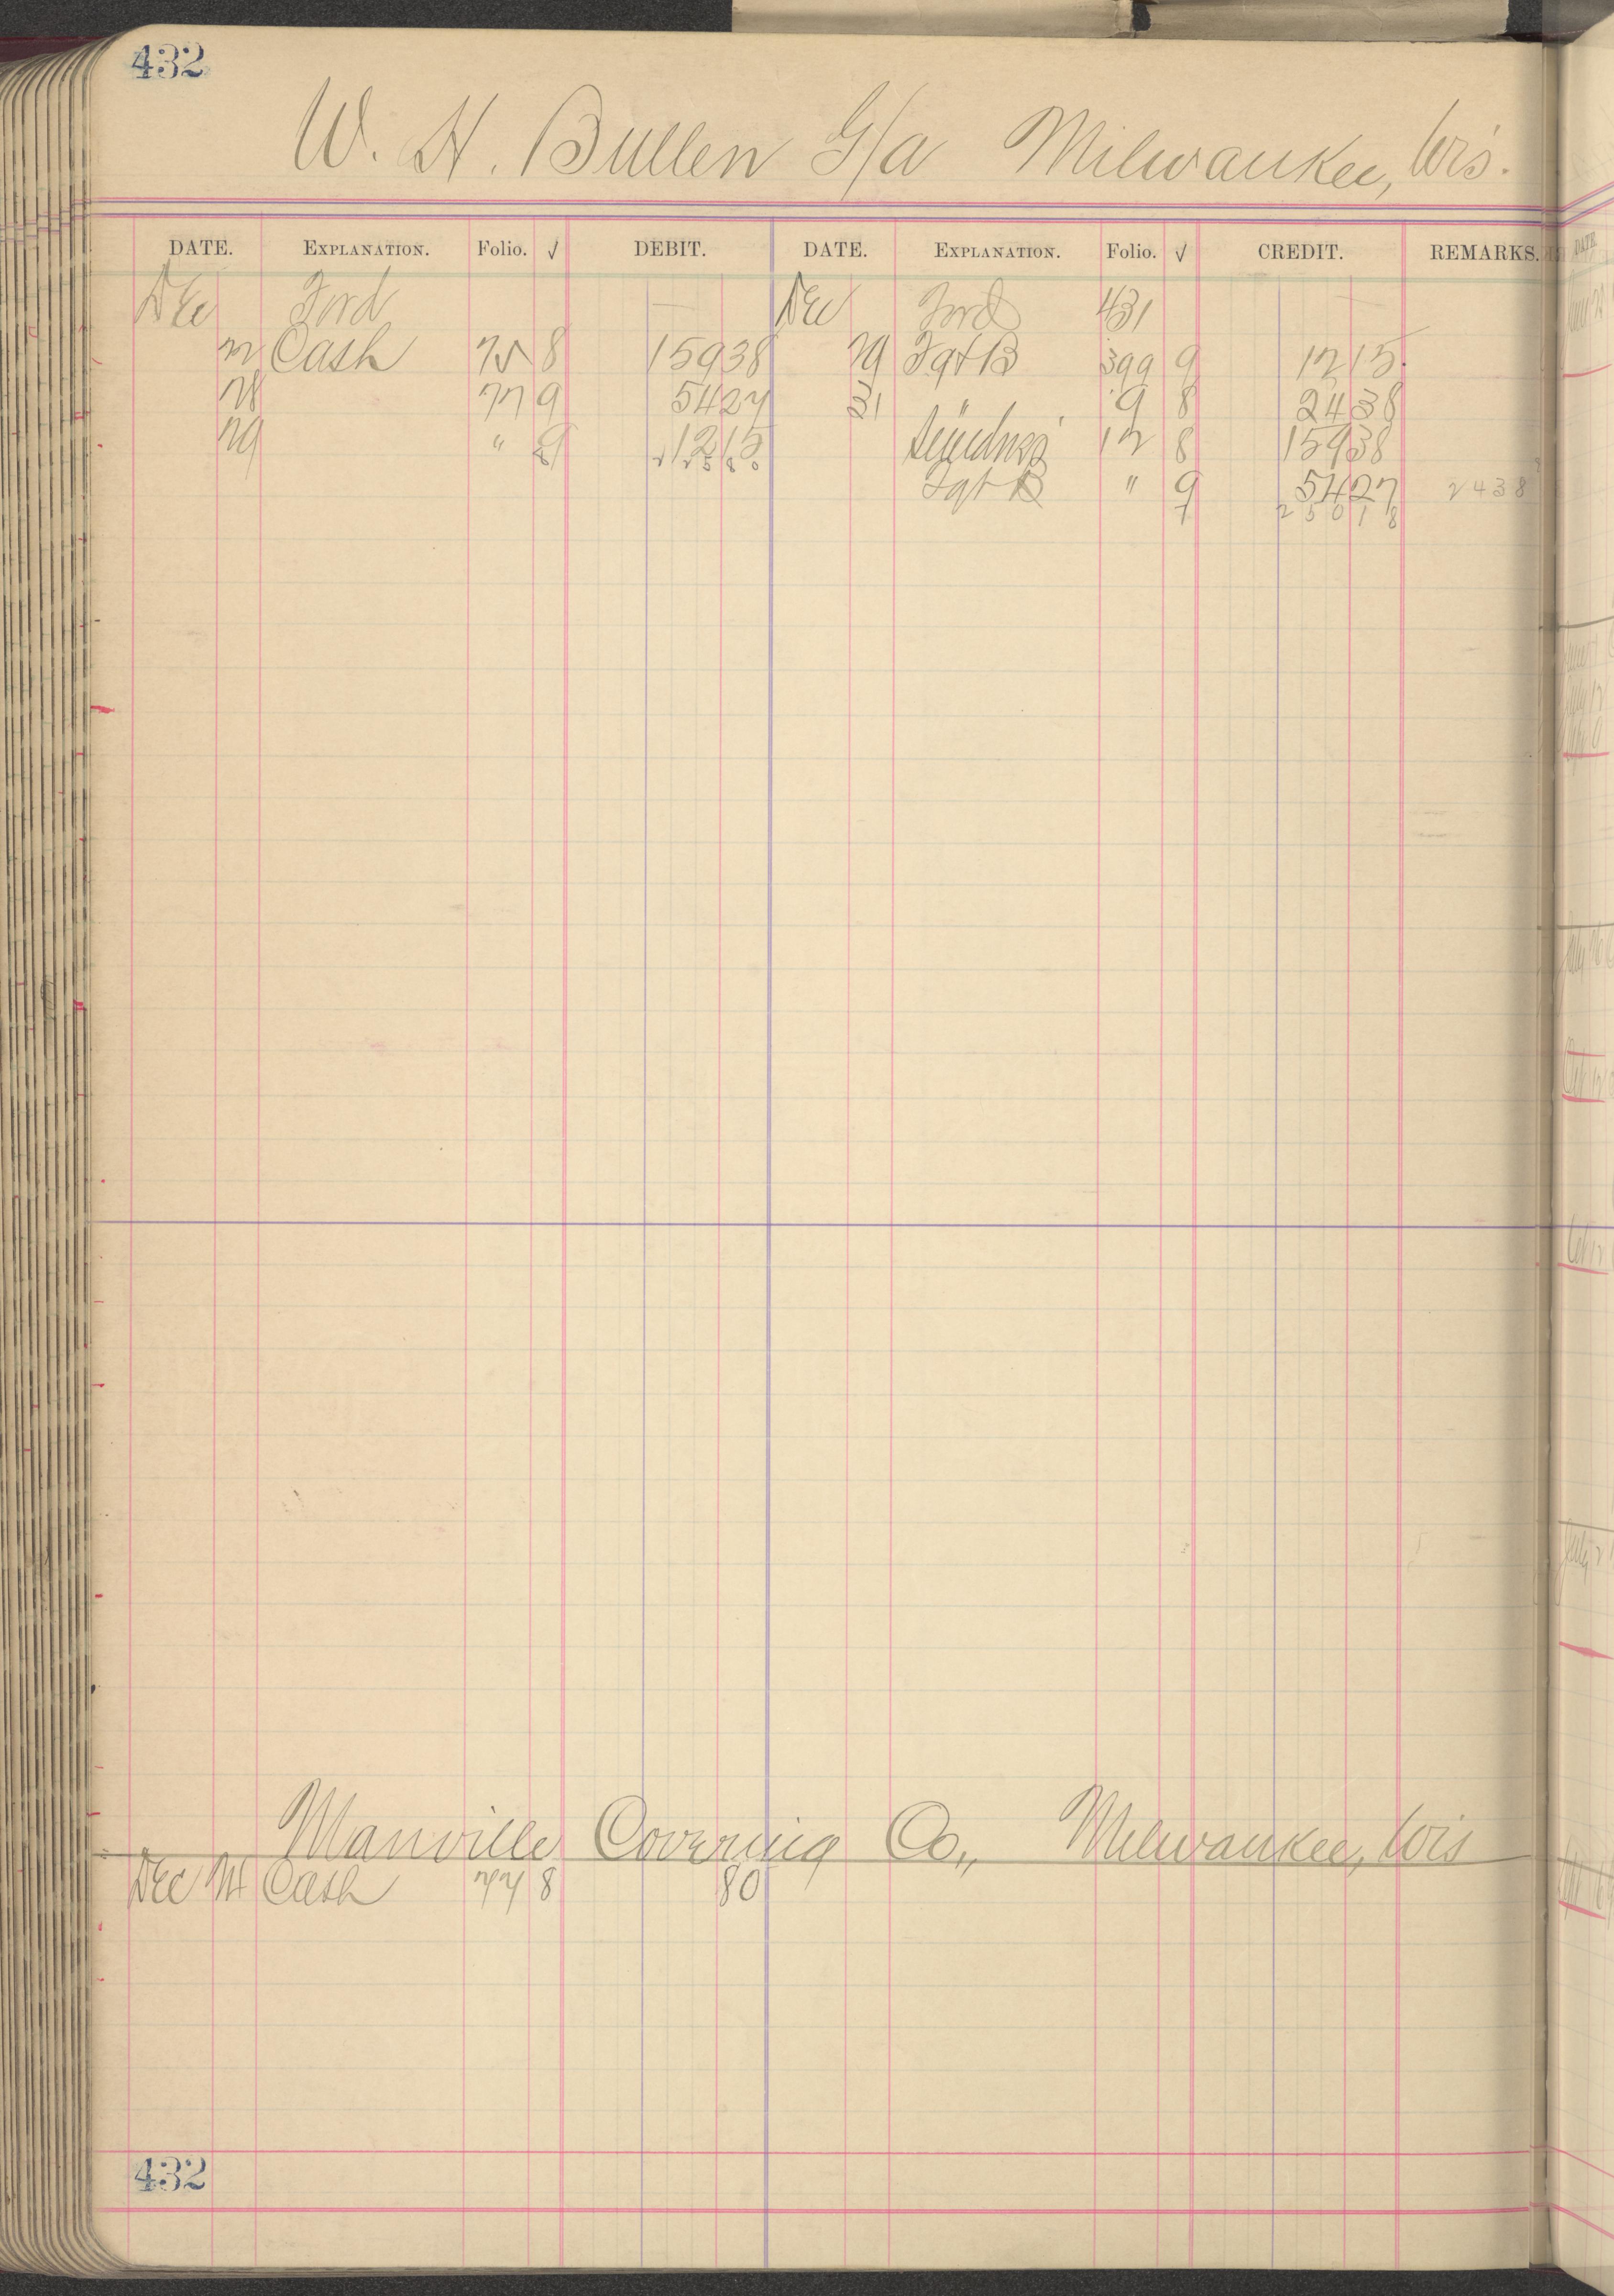 432
W. H. Bullen G/a Milwaukee, Wis.
DATE. EXPLANATION. Folio. √ DEBIT. DATE. EXPLANATION. Folio. √ CREDIT. REMARKS.
Dec Ford — Dec Ford 431 —
22 Cash 75 8 159 38 29 Fgt B 399 9 12 15
28 77 9 54 27 31 " 9 8 24 38
29 " 9 12 15 Sundries 12 8 159 38
225 80 Fgt B " 9 54 27 24 38
250 18
Manville Covering Co., Milwaukee, Wis
Dec 24 Cash 77 8 80
432